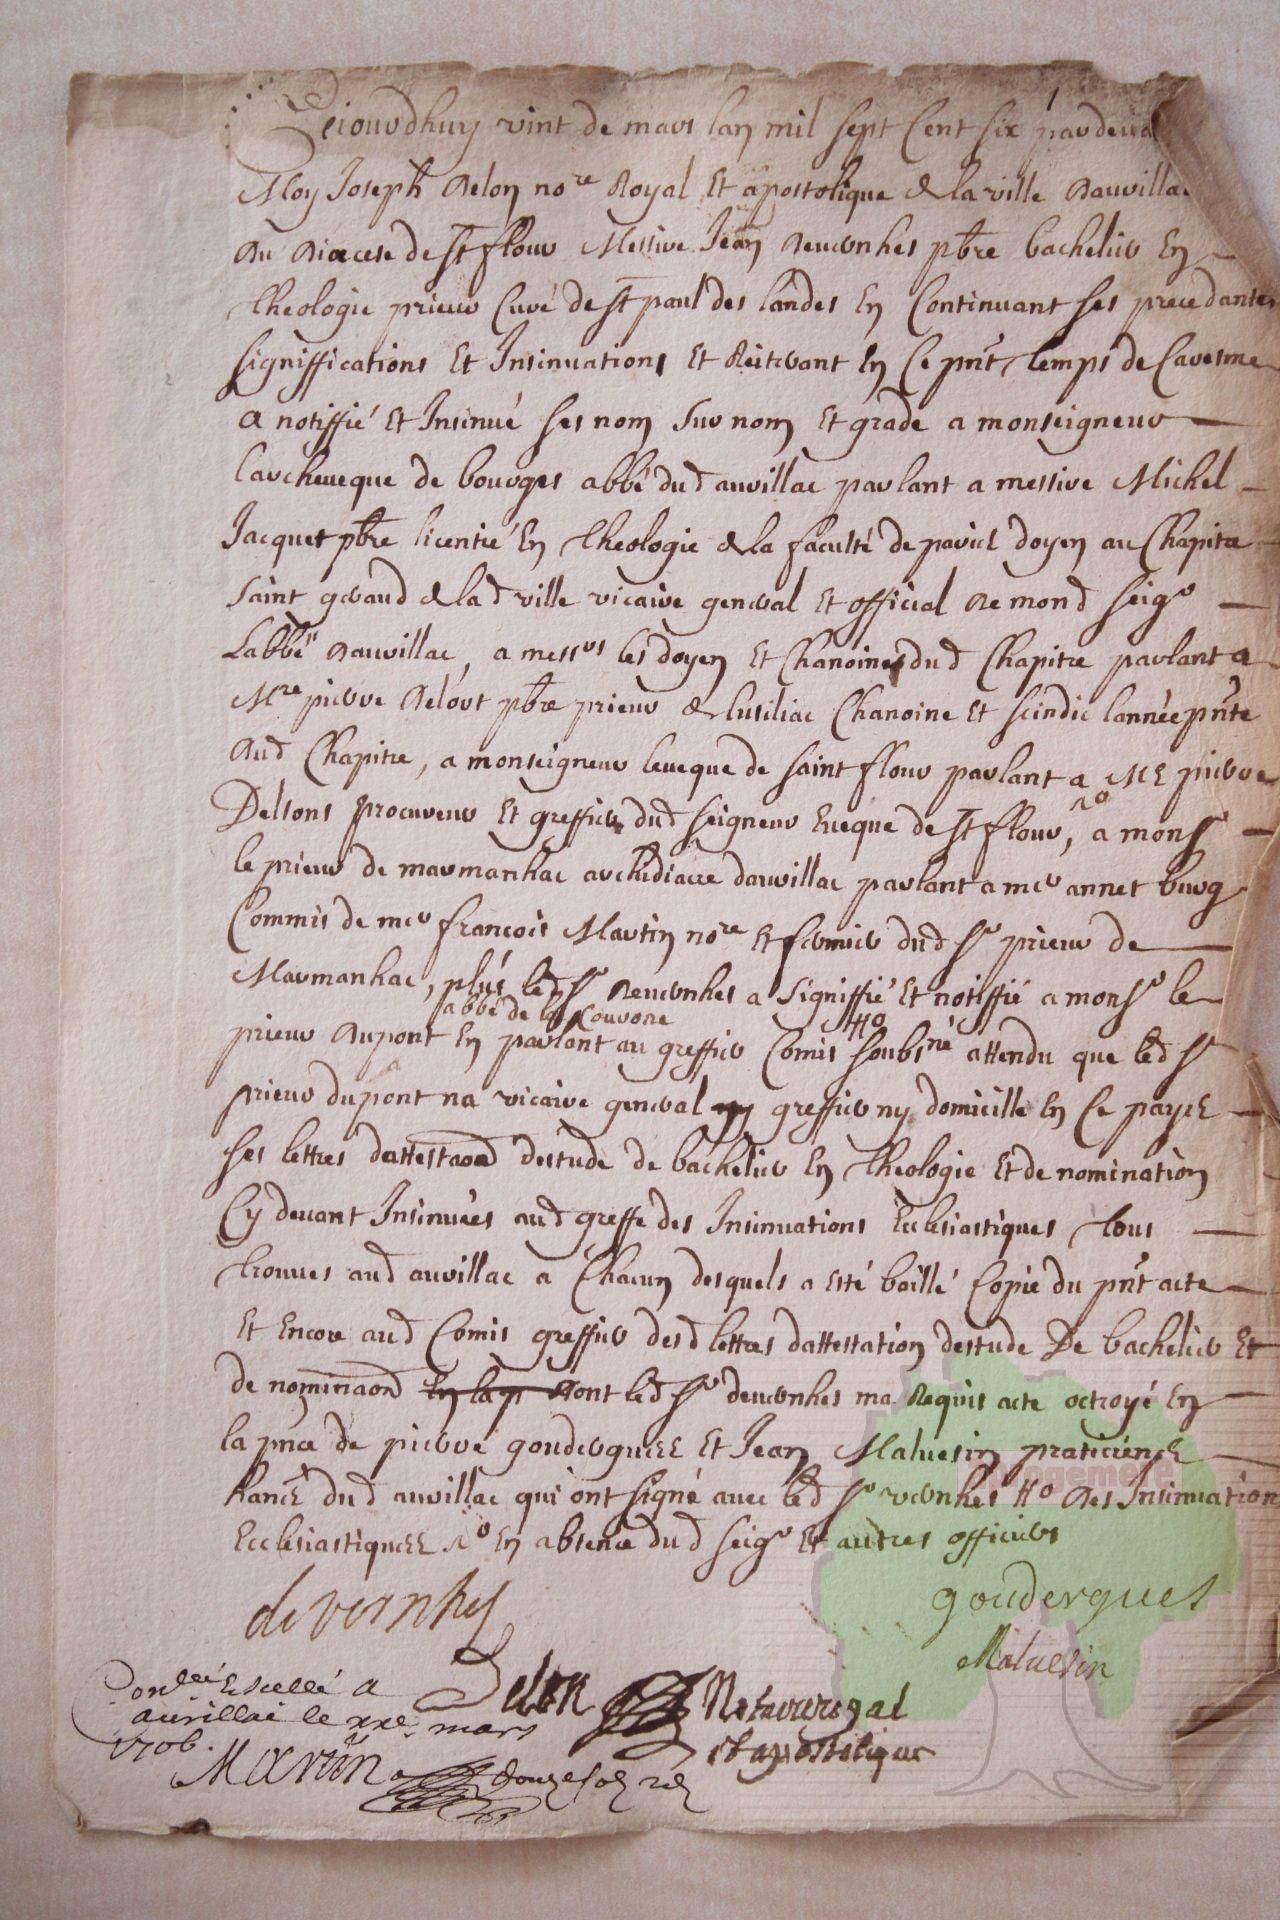 Cejourdhuy vint de mars lan mil sept Cent six pardeva
Moy Joseph Delon nore Royal Et apostolique de la ville daurillac
du diocese de St flour Messire Jean devernhes pbre bachelier En
theologie prieur Curé de St paul des landes En Continuant ses precedantes
signiffications Et Insinuations Et Reiterant En Ce pnt temps de Caresme
a notiffié Et Insinué ses nom surnom Et grade a monseigneur
larcheveque de bourges abbé dud aurillac parlant a messire Michel
Jacquet pbre licentié En theologie de la faculté de paris doyen au Chapitre
saint geraud de lad ville vicaire general Et official de mond seigr
Labbé daurillac, a messrs les doyen Et Chanoines dud Chapitre parlant a
Mre pierre delort pbre prieur de Chanoine Et scindic lannée pnte
dud Chapitre, a monseigneur leveque de saint flour parlant a ME pierre
Delsons procureur Et greffier dud seigneur Eveque de St flour, a monsr
le prieur de marmanhac archidiacre daurillac parlant a mer annet burg
Commis de mer francois Martin nore Et fermier dud sr prieur de
Marmanhac, plus led sr devernhes a signiffié Et notiffié a monsr le
abbé de la Couronne
prieur dupont En parlant au greffier Comis soubsné attendu que led sr
prieur dupont na vicaire general greffier ny domicille En Ce payis
ses lettres dattestaond destude de bachelier En theologie Et de nomination
Cy devant Insinuées aud greffe des Insinuations Eclesiastiques tous
trouves aud aurillac a Chacun desquels a esté baillé Copie du pnt acte
Et Encore aud Comis greffier desd lettres dattestation destude De bachelier Et
de nominaond dont led sr devernhes ma Requis acte octroyé En
la pnce de pierre gouderguees Et Jean Malvesin praticiens
hants dud aurillac qui ont signé avec led sr vernhes des Insinuation
Ecclesiastiques En absence dud seigr Et autres officiers
de vernhes
goudergues
Malvesin
Delon Notaire royal
et apostolique
Conllé Et scellé a
aurillac le xxe mars
1706.
Martin